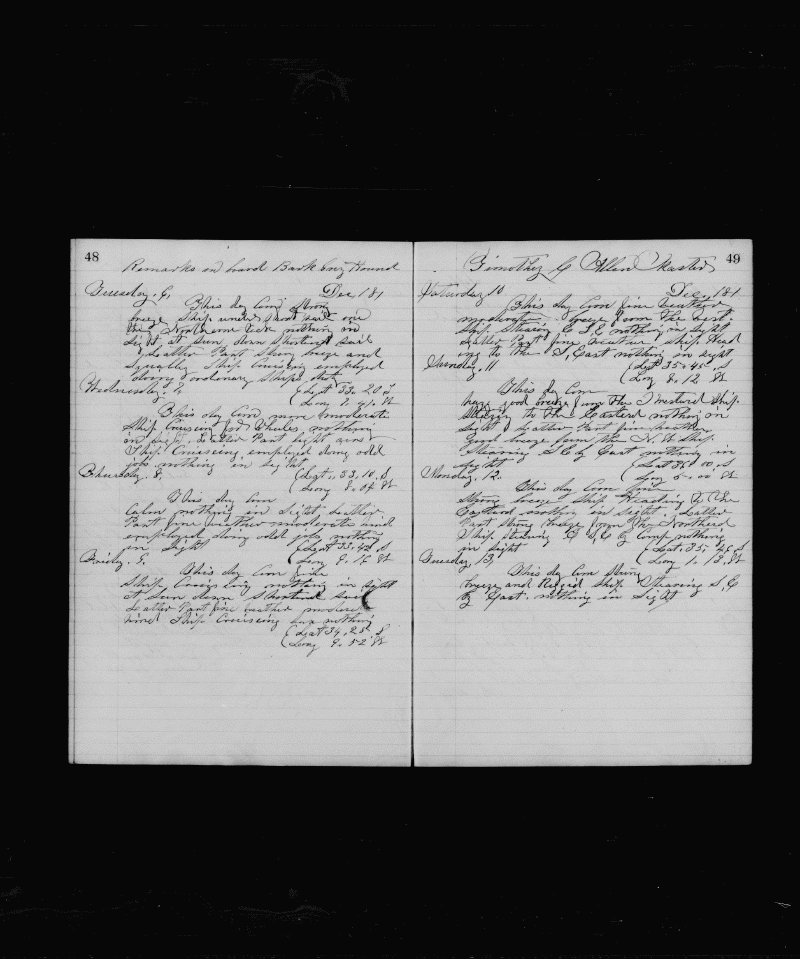 48
Remarks on board Bark Grey Hound
Tuesday. 6, Dec 181
This day Com Strong
breeze Ship under sail one
Northern nothing in
Sight, at Sun down Shortend sail
Latter Part Strong breeze and
Squally Ship Cruising employed
doing ordinary Ships duty
Wednesday. 7 (Lat 33. 20 S
(Long W
This day Com more moderate
Ship Cruising for Whales, nothing
in sight, Latter Part light
Ship Cruiseing employed doing odd
jobs nothing in Sight
Thursday. 8, (Lat. 33, 10, S
(Long 8. 04 W
This day Com
Calm nothing in Sight. Latter
Part fine weather moderate and
employed doing odd jobs nothing
in Sight (Lat 33,42 S
Friday. 9. (Long 9. 16 W
This day Com fine
Ship Cruising nothing in sight
At Sun down Shortend sail
Latter Part fine weather moderate
wind Ship Cruiseing nothing
(Lat 34, 25, S
(Long 9. 52 W
49
Timothy C Allen Master
Saturday 10 Dec, 181
This day Com fine weather
moderate breeze from the West.
Ship Stearing E S E nothing in Sight
Latter Part fine weather, Ship Head
ing to the S, East nothing in sight
Sunday, 11 (Lat 35. 45, S
(Long 8. 12 W
This day Com
good breeze from the S Westerd Ship
Stearing to the Easterd nothing in
Sight Latter Part fine weather
Good breeze from the N. W Ship
Stearing S E by East nothing in
sight (Lat 36. 00, S
Monday, 12. (Long 5. 00 W
This day Com fine
Strong breeze Ship Heading to the
Easterd nothing in sight. Latter
Part Strong breeze from the Northerd
Ship Stearing by Comp nothing
in sight (Lat. 35, 46 S
Tuesday, 13, (Long 1. 13, W
This day Com Strong
breeze and Ruged Ship Stearing S, E
by East. nothing in Sight